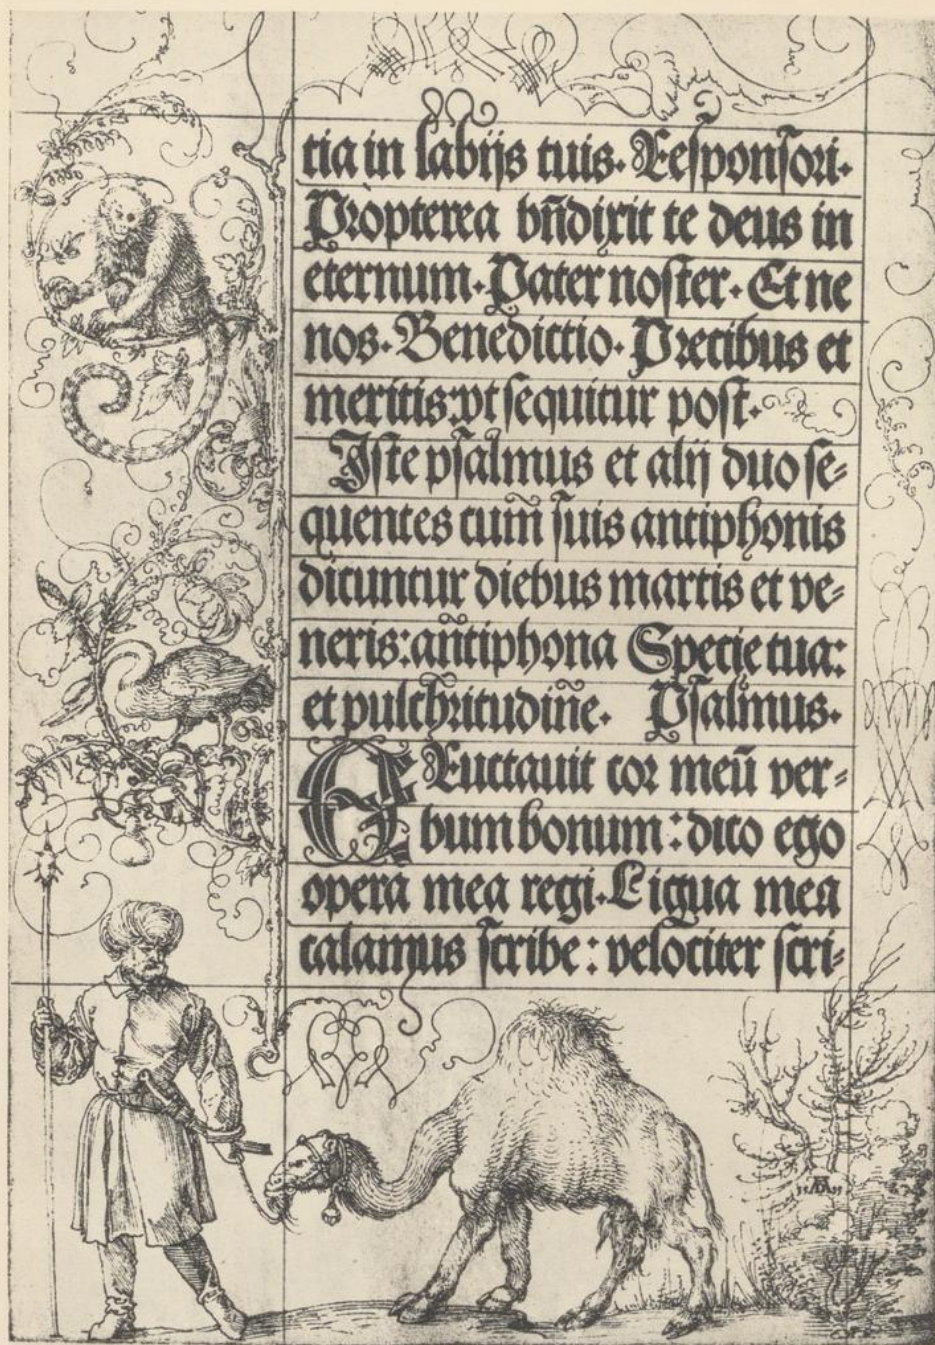 tia in labijs tuis. Responsori.
Propterea bn̄dixit te deus in
eternum. Pater noster. Et ne
nos. Benedictio. Precibus et
meritis: vt sequitur post.
Iste psalmus et alij duo se-
quentes cum̄ suis antiphonis
dicuntur diebus martis et ve-
neris: an̄tiphona Specie tua:
et pulchritudin̄e. Psalmus.
ERuctauit cor meū ver-
bum bonum: dico ego
opera mea regi. Ligua mea
calamus scribe: velociter scri-
AD